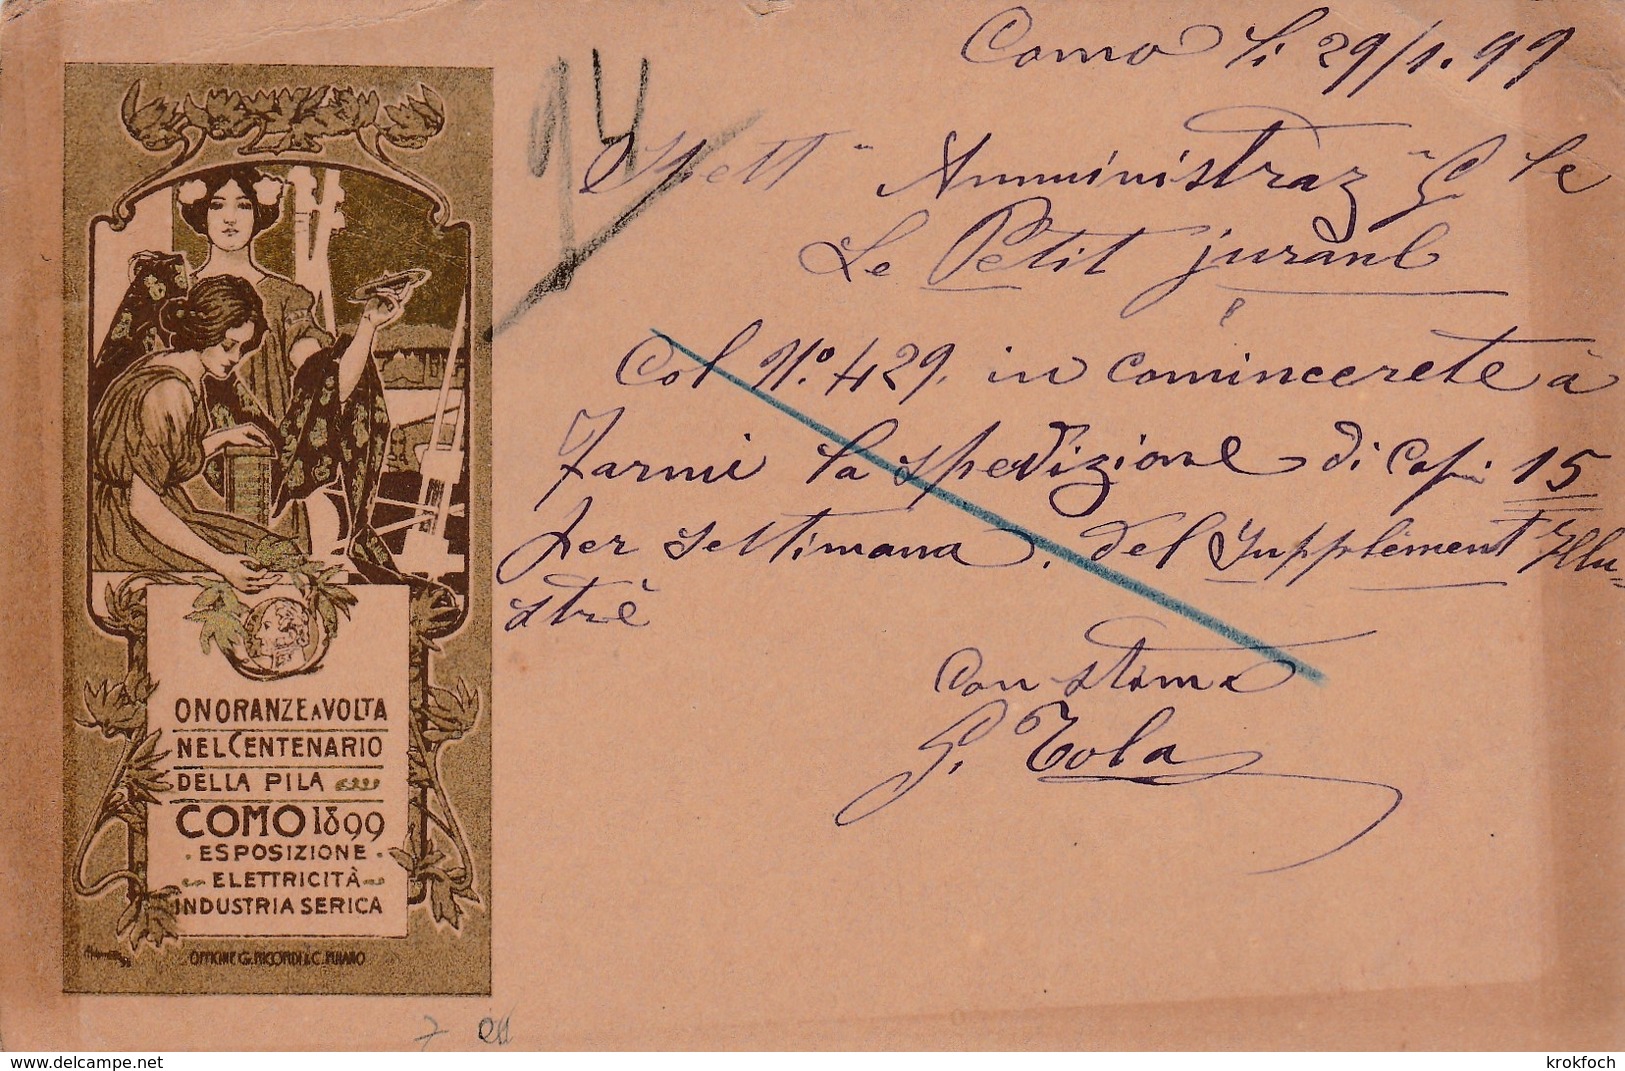 Como li 29/1.99
94
Spett" Amministraz" G. le
Le Petit juranl
Col N.º 429. in comincerete à
Farmi la spedizione di Copi 15
per settimana. del Supplèment Illu=
strè
Con stima
G. Tola
ONORANZE A VOLTA
NEL CENTENARIO
DELLA PILA
COMO 1899
ESPOSIZIONE
ELETTRICITÀ
INDUSTRIA SERICA
OFFICINE G. RICORDI & C. MILANO
7
delcampe.net
krokfoch